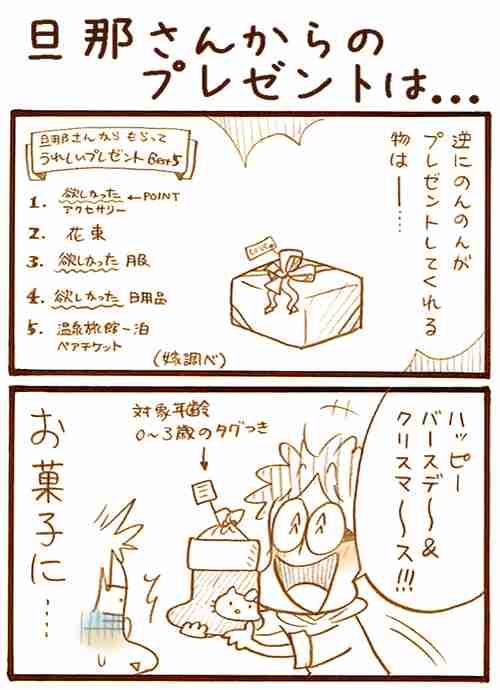 旦那さんからの
プレゼントは...
逆にのんのんが
プレゼントしてくれる
物は―……
旦那さんからもらって
うれしいプレゼントBest5
1. 欲しかった ←POINT
アクセサリー
2. 花束
3. 欲しかった 服
4. 欲しかった 日用品
5. 温泉旅館一泊
ペアチケット
(嫁調べ)
ハッピー
バースデ〜&
クリスマ〜ス!!!
対象年齢
0〜3歳のタグつき
お菓子に……